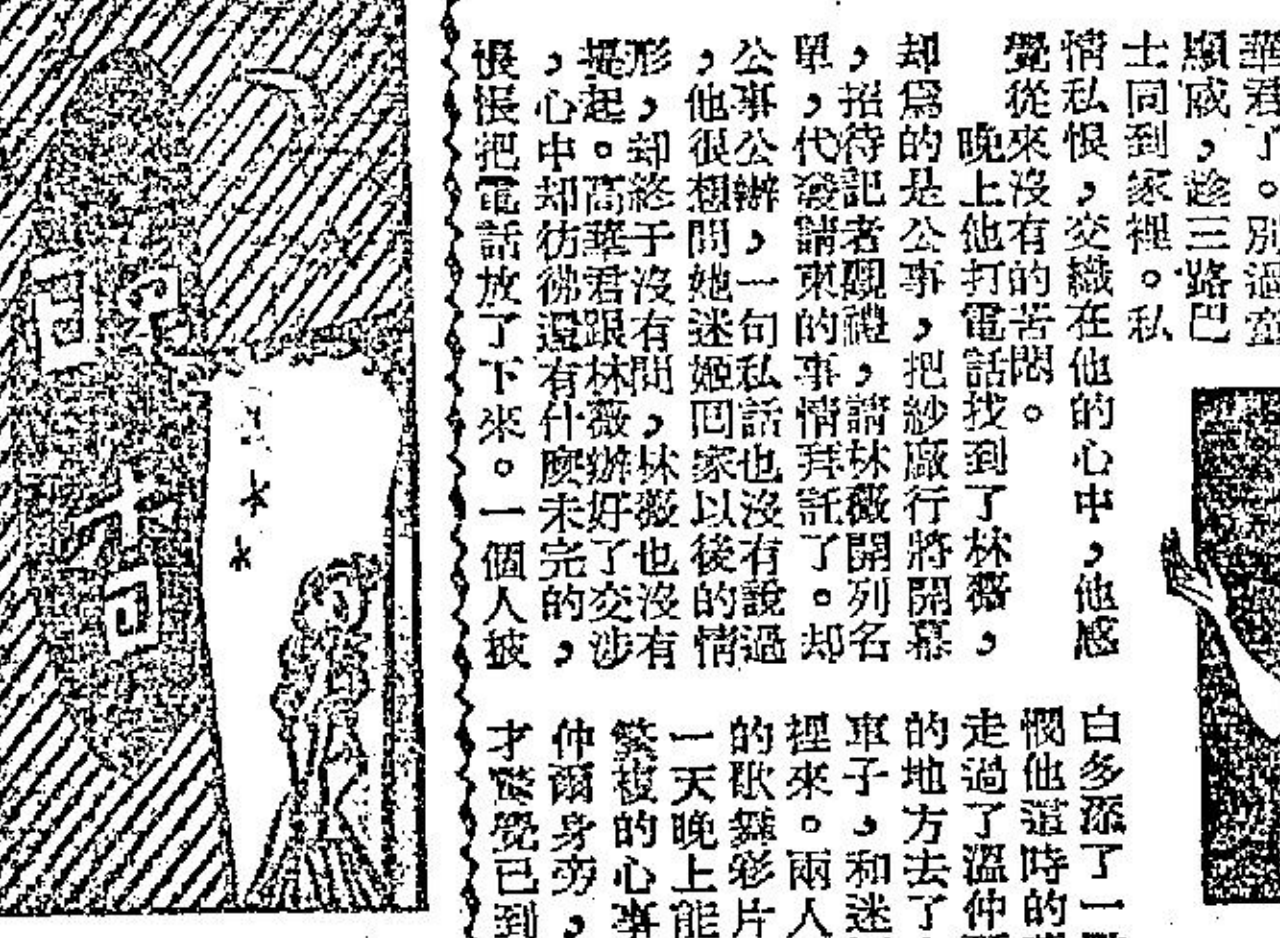 華君了。別過
顯威,趁三路巴
士同到家裡。私
情私恨,交織在他的心中,他感
覺從來沒有的苦悶。
晚上他打電話找到了林薇,
却爲的是公事,把紗廠行將開幕
,招待記者觀禮,請林薇開列名
單,代發請柬的事情拜託了。却
公事公辦,一句私話也沒有說過
,他很想問她迷姬回家以後的情
形,却終于沒有問,林薇也沒有
提起。高華君跟林薇辦好了交涉
,心中却彷彿還有什麼未完的,
悵悵把電話放了下來。一個人披
白多添了一
憫他這時的
走過了溫仲
的地方去了
車子,和迷
裡來。兩人
的歌舞彩片
一天晚上能
繁複的心事
仲爾身旁,
才驚覺已到